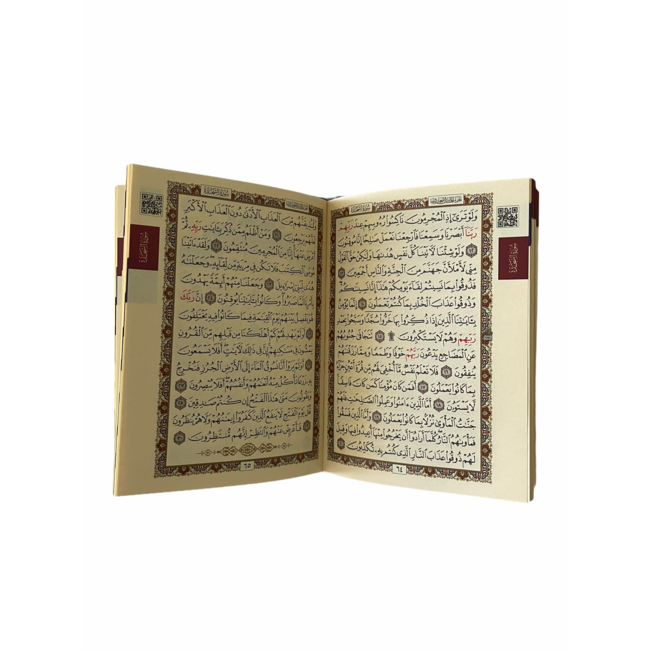 سُورَةُ السَّجْدَةِ
وَلَوْ تَرَىٰٓ إِذِ ٱلْمُجْرِمُونَ نَاكِسُوا۟ رُءُوسِهِمْ عِندَ رَبِّهِمْ
رَبَّنَآ أَبْصَرْنَا وَسَمِعْنَا فَٱرْجِعْنَا نَعْمَلْ صَٰلِحًا إِنَّا مُوقِنُونَ
١٢ وَلَوْ شِئْنَا لَءَاتَيْنَا كُلَّ نَفْسٍ هُدَىٰهَا وَلَٰكِنْ حَقَّ ٱلْقَوْلُ
مِنِّى لَأَمْلَأَنَّ جَهَنَّمَ مِنَ ٱلْجِنَّةِ وَٱلنَّاسِ أَجْمَعِينَ ١٣
فَذُوقُوا۟ بِمَا نَسِيتُمْ لِقَآءَ يَوْمِكُمْ هَٰذَآ إِنَّا نَسِينَٰكُمْ
وَذُوقُوا۟ عَذَابَ ٱلْخُلْدِ بِمَا كُنتُمْ تَعْمَلُونَ ١٤ إِنَّمَا يُؤْمِنُ
بِـَٔايَٰتِنَا ٱلَّذِينَ إِذَا ذُكِّرُوا۟ بِهَا خَرُّوا۟ سُجَّدًا وَسَبَّحُوا۟ بِحَمْدِ
رَبِّهِمْ وَهُمْ لَا يَسْتَكْبِرُونَ ۩ ١٥ تَتَجَافَىٰ جُنُوبُهُمْ
عَنِ ٱلْمَضَاجِعِ يَدْعُونَ رَبَّهُمْ خَوْفًا وَطَمَعًا وَمِمَّا رَزَقْنَٰهُمْ
يُنفِقُونَ ١٦ فَلَا تَعْلَمُ نَفْسٌ مَّآ أُخْفِىَ لَهُم مِّن قُرَّةِ أَعْيُنٍ جَزَآءًۢ
بِمَا كَانُوا۟ يَعْمَلُونَ ١٧ أَفَمَن كَانَ مُؤْمِنًا كَمَن كَانَ فَاسِقًا
لَّا يَسْتَوُۥنَ ١٨ أَمَّا ٱلَّذِينَ ءَامَنُوا۟ وَعَمِلُوا۟ ٱلصَّٰلِحَٰتِ فَلَهُمْ
جَنَّٰتُ ٱلْمَأْوَىٰ نُزُلًۢا بِمَا كَانُوا۟ يَعْمَلُونَ ١٩ وَأَمَّا ٱلَّذِينَ فَسَقُوا۟
فَمَأْوَىٰهُمُ ٱلنَّارُ كُلَّمَآ أَرَادُوٓا۟ أَن يَخْرُجُوا۟ مِنْهَآ أُعِيدُوا۟ فِيهَا وَقِيلَ
لَهُمْ ذُوقُوا۟ عَذَابَ ٱلنَّارِ ٱلَّذِى كُنتُم بِهِۦ تُكَذِّبُونَ ٢٠
٦٤
سُورَةُ السَّجْدَةِ
سُورَةُ السَّجْدَةِ
وَلَنُذِيقَنَّهُم مِّنَ ٱلْعَذَابِ ٱلْأَدْنَىٰ دُونَ ٱلْعَذَابِ ٱلْأَكْبَرِ
لَعَلَّهُمْ يَرْجِعُونَ ٢١ وَمَنْ أَظْلَمُ مِمَّن ذُكِّرَ بِـَٔايَٰتِ رَبِّهِۦ ثُمَّ
أَعْرَضَ عَنْهَآ إِنَّا مِنَ ٱلْمُجْرِمِينَ مُنتَقِمُونَ ٢٢ وَلَقَدْ ءَاتَيْنَا
مُوسَى ٱلْكِتَٰبَ فَلَا تَكُن فِى مِرْيَةٍ مِّن لِّقَآئِهِۦ وَجَعَلْنَٰهُ
هُدًى لِّبَنِىٓ إِسْرَٰٓءِيلَ ٢٣ وَجَعَلْنَا مِنْهُمْ أَئِمَّةً يَهْدُونَ
بِأَمْرِنَا لَمَّا صَبَرُوا۟ وَكَانُوا۟ بِـَٔايَٰتِنَا يُوقِنُونَ ٢٤ إِنَّ رَبَّكَ
هُوَ يَفْصِلُ بَيْنَهُمْ يَوْمَ ٱلْقِيَٰمَةِ فِيمَا كَانُوا۟ فِيهِ يَخْتَلِفُونَ
٢٥ أَوَلَمْ يَهْدِ لَهُمْ كَمْ أَهْلَكْنَا مِن قَبْلِهِم مِّنَ ٱلْقُرُونِ
يَمْشُونَ فِى مَسَٰكِنِهِمْ إِنَّ فِى ذَٰلِكَ لَءَايَٰتٍ أَفَلَا يَسْمَعُونَ
٢٦ أَوَلَمْ يَرَوْا۟ أَنَّا نَسُوقُ ٱلْمَآءَ إِلَى ٱلْأَرْضِ ٱلْجُرُزِ فَنُخْرِجُ
بِهِۦ زَرْعًا تَأْكُلُ مِنْهُ أَنْعَٰمُهُمْ وَأَنفُسُهُمْ أَفَلَا يُبْصِرُونَ ٢٧
وَيَقُولُونَ مَتَىٰ هَٰذَا ٱلْفَتْحُ إِن كُنتُمْ صَٰدِقِينَ ٢٨
قُلْ يَوْمَ ٱلْفَتْحِ لَا يَنفَعُ ٱلَّذِينَ كَفَرُوٓا۟ إِيمَٰنُهُمْ وَلَا هُمْ يُنظَرُونَ
٢٩ فَأَعْرِضْ عَنْهُمْ وَٱنتَظِرْ إِنَّهُم مُّنتَظِرُونَ ٣٠
٦٥
سُورَةُ السَّجْدَةِ